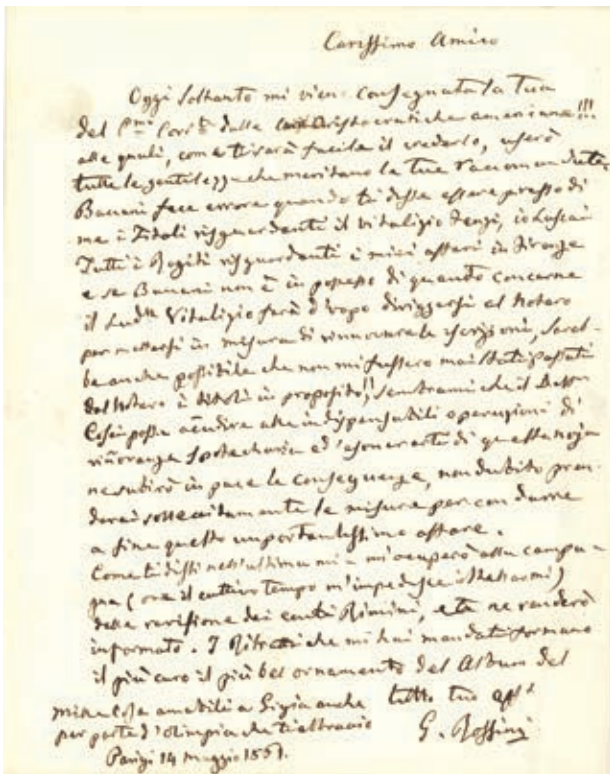 Carissimo Amico
Oggi soltanto mi vien consegnata la Tua
del Cor.te dalle Aristocratiche americane!!!
alle quali, come ti sarà facile il crederlo, userò
tutte le gentilezze che meritano le tue raccomandate
Baccani fece errore quando ti disse essere presso di
me i Titoli risguardanti il Vitalizio Fenzi, io lasciai
Tutti i Rogiti risguardanti i miei affari in Firenze
e se Baccani non è in possesso di quanto concerne
il Sud.to Vitalizio farà d'uopo diriggersi al Notaro
per mettersi in misura di rinnovare le iscrizioni, sareb-
be anche possibile che non mi fussero mai stati passati
dal Notaro i titoli in proposito!! Sembrami che il
possa accudire alle indispensabili operazioni di
rinovazza Ipotecharia ed esonerarti di questa noja
ne subirò in pace le conseguenze, non dubito pren-
derai sollecitamente le misure per condurre
a fine questo importantissimo affare.
Come ti dissi nell'ultima mia mi occuperò alla campa-
gna (ove il cattivo tempo m'impedisce istallarmi)
della revisione dei conti Rimini, e te ne renderò
informato. I Ritratti che mi hai mandati formano
il più caro il più bel ornamento del Album del
tutto tuo aff.o
G. Rossini
Mille cose amabili a Gigia anche
per parte d'Olimpia che ti abbraccia
Parigi 14 Maggio